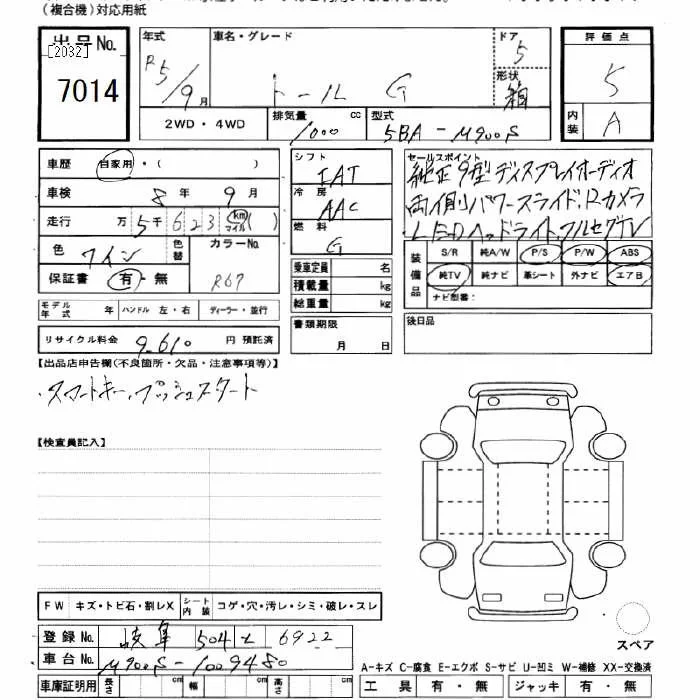 (複合機)対応用紙
出品No.
[2032]
7014
年式 R5/9月
車名・グレード トール G
ドア 5
形状 箱
2WD・4WD
排気量 1000 cc
型式 5BA-M900S
評価点 5
内装 A
車歴 自家用・( )
車検 8年 9月
走行 万5千623 km マイル ( )
色 ワイン
色替
カラーNo. R67
保証書 有・無
モデル年式 年
ハンドル 左・右
ディーラー・並行
リサイクル料金 9,610 円 預託済
シフト IAT
冷房 AAC
燃料 G
乗車定員 名
積載量 kg
総重量 kg
書類期限 月 日
セールスポイント
純正9型ディスプレイオーディオ
両側パワースライド、Rカメラ
LEDヘッドライト、フルセグTV
装備品
S/R 純A/W P/S P/W ABS
純TV 純ナビ 革シート 外ナビ エアB
ナビ型番:
後日品
【出品店申告欄(不良箇所・欠品・注意事項等)】
・スマートキー、プッシュスタート
【検査員記入】
FW キズ・トビ石・割レX
シート内装 コゲ・穴・汚レ・シミ・破レ・スレ
登録No. 岐阜 504 6922
車台No. M900S-1009480
車庫証明用 長さ cm 幅 cm 高さ cm
スペア
A-キズ C-腐食 E-エクボ S-サビ U-凹ミ W-補修 XX-交換済
工具 有・無 ジャッキ 有・無